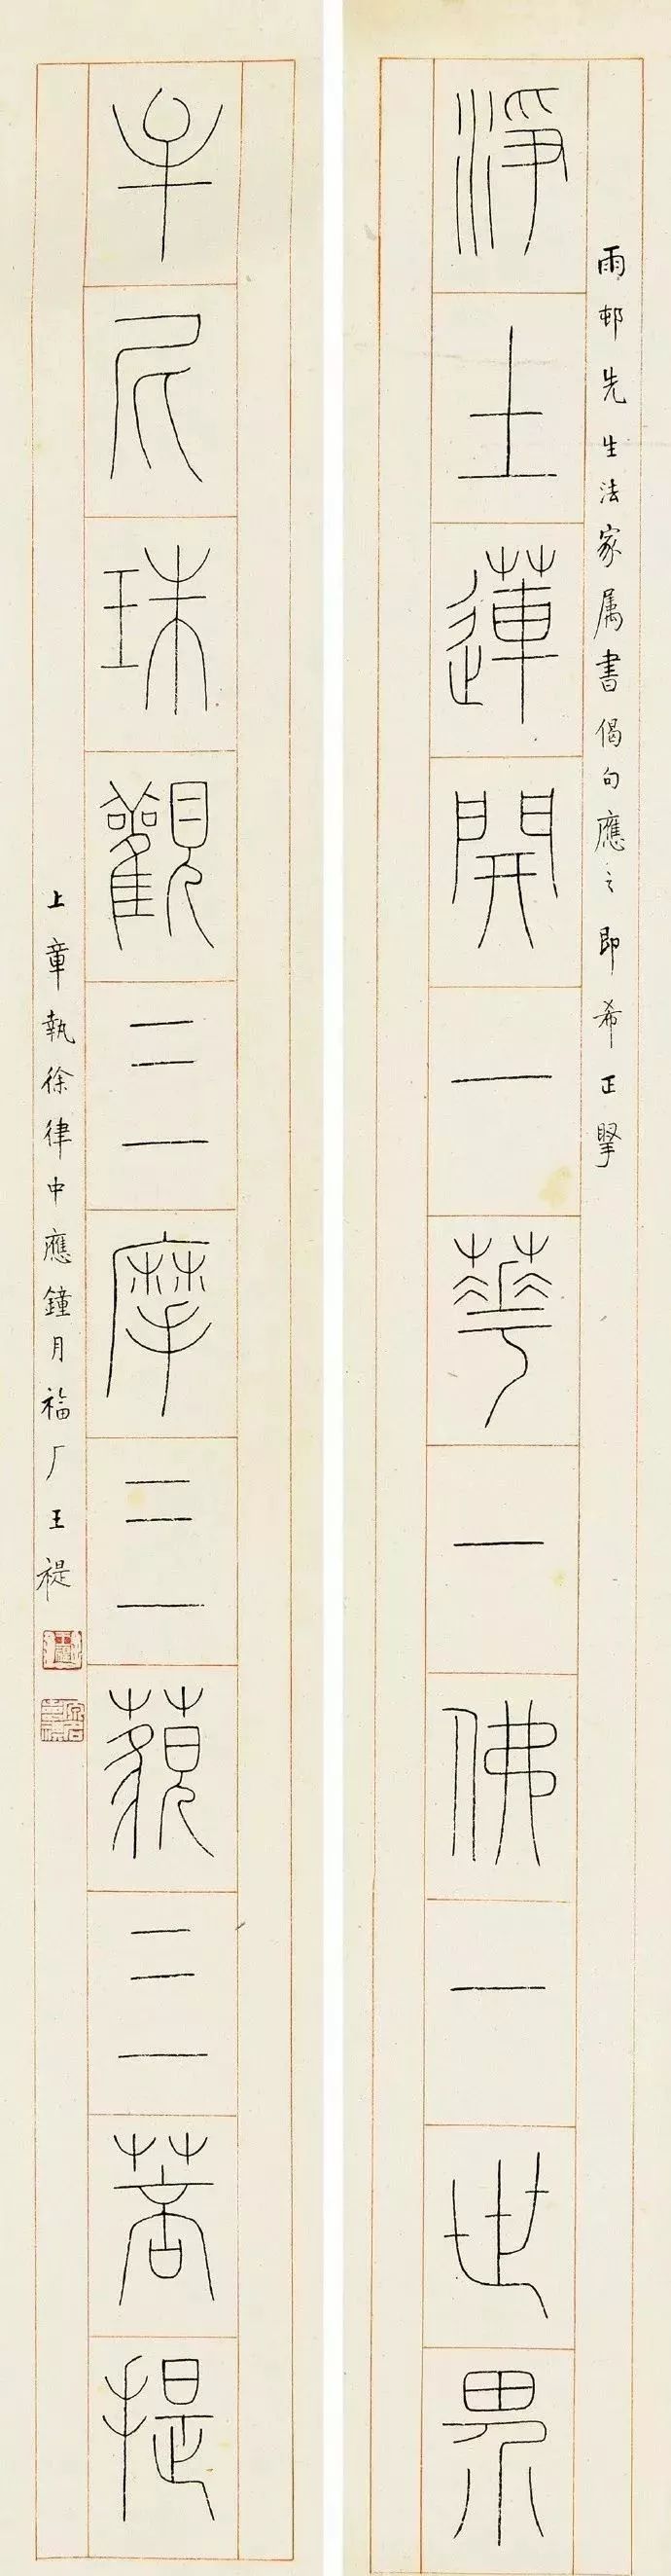 雨邨先生法家属書偈句應之即希正掔
淨土蓮開一華一佛一世界
牟尼珠觀三摩三藐三菩提
上章執徐律中應鐘月福厂王禔